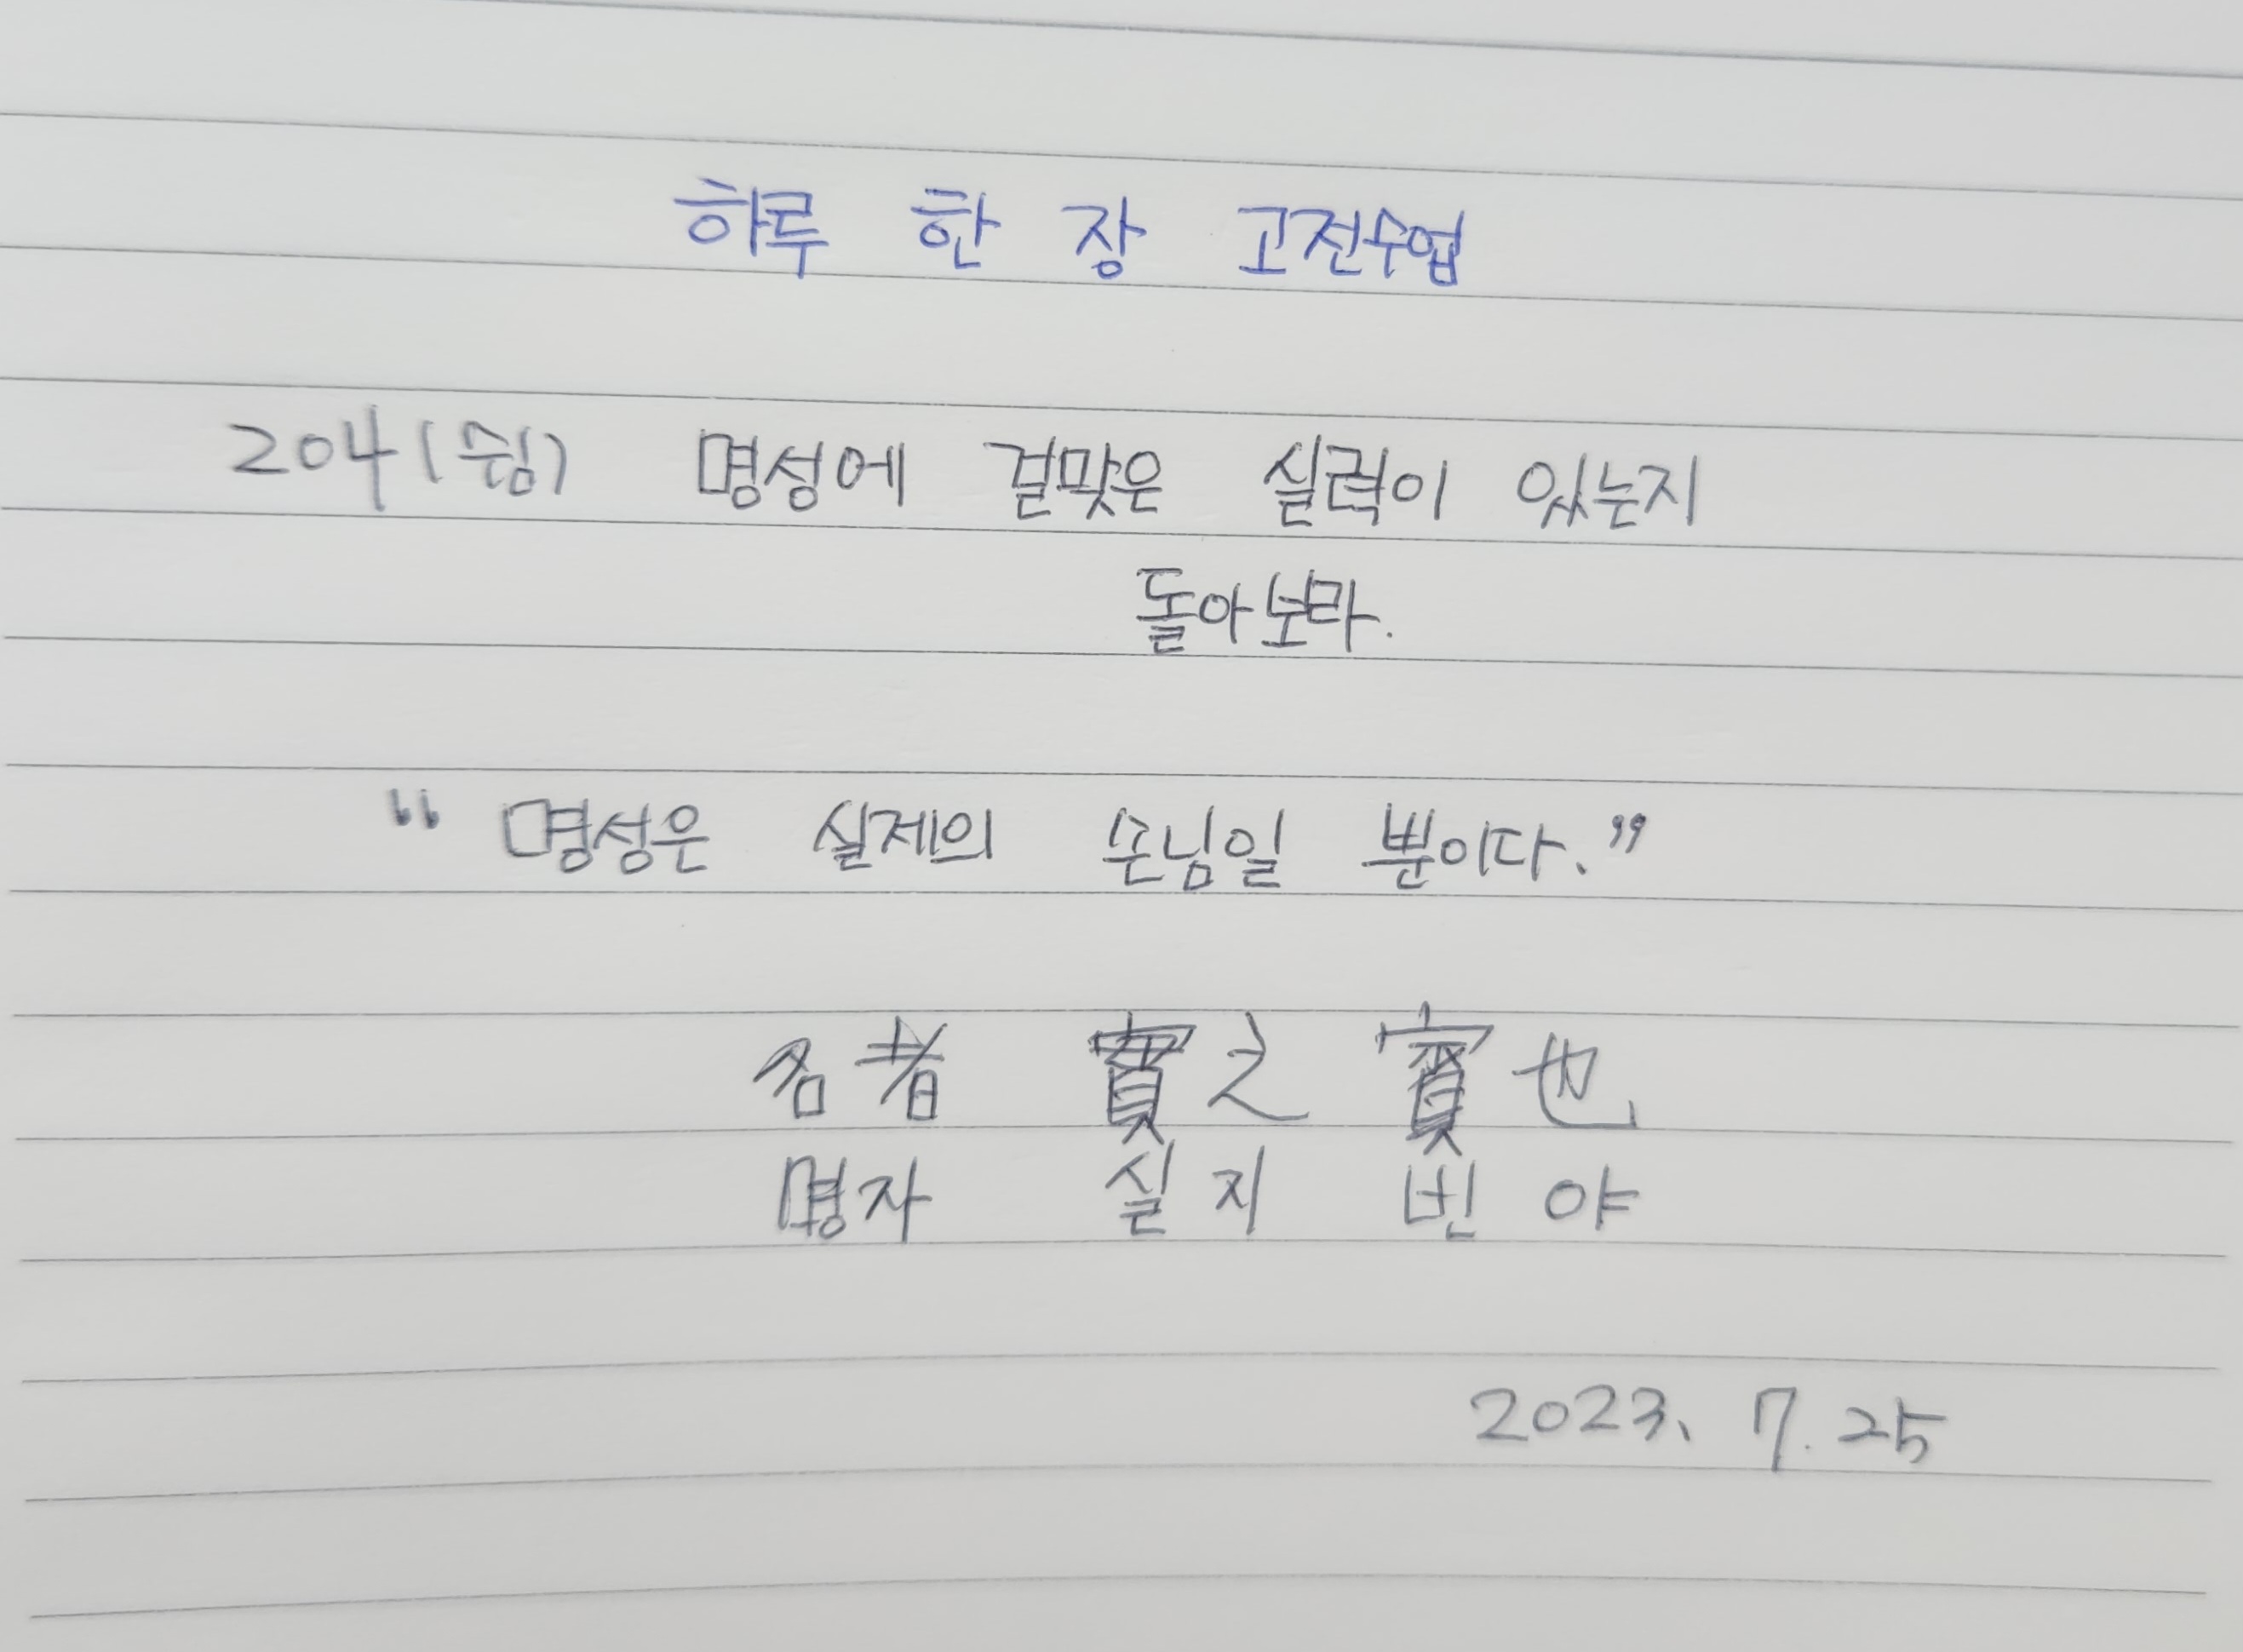 하루 한 장 고전수업
204(쉼) 명성에 걸맞은 실력이 있는지
돌아보라.
“명성은 실제의 손님일 뿐이다.”
名者 實之 賓也
명자 실지 빈야
2023. 7. 25